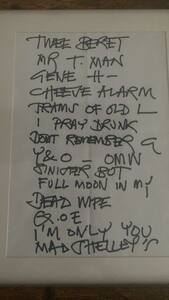 THEE BERET
MR T. MAN
GENE H-
CHEEVE ALARM
TRAMS OF OLD L
I PRAY DRUNK
DONT REMEMBER G
Y&O - OMW
SINISTER BUT
FULL MOON IN MY
DEAD WIFE
Q.OE
I'M ONLY YOU
MAD SHELLEY'S